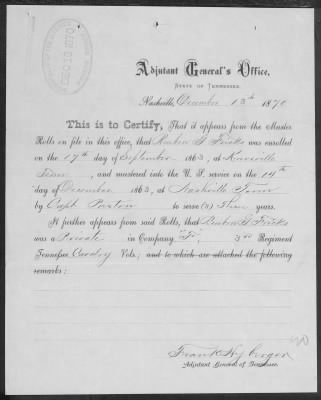 Adjutant General's Office,
STATE OF TENNESSEE.
Nashville, December 13th 1870
This is to Certify, That it appears from the Muster
Rolls on file in this office, that Reuben G. Fricks was enrolled
on the 17th day of September 1863, at Knoxville
Tenn, and mustered into the U. S. service on the 14th
day of December 1863, at Nashville Tenn
by Capt to serve (3) Three years.
It further appears from said Rolls, that Reuben G. Fricks
was a Private in Company "F", 3rd Regiment
Tennessee Cavalry Vols; and to which are attached the following
remarks:
Frank
Adjutant General of Tennessee.